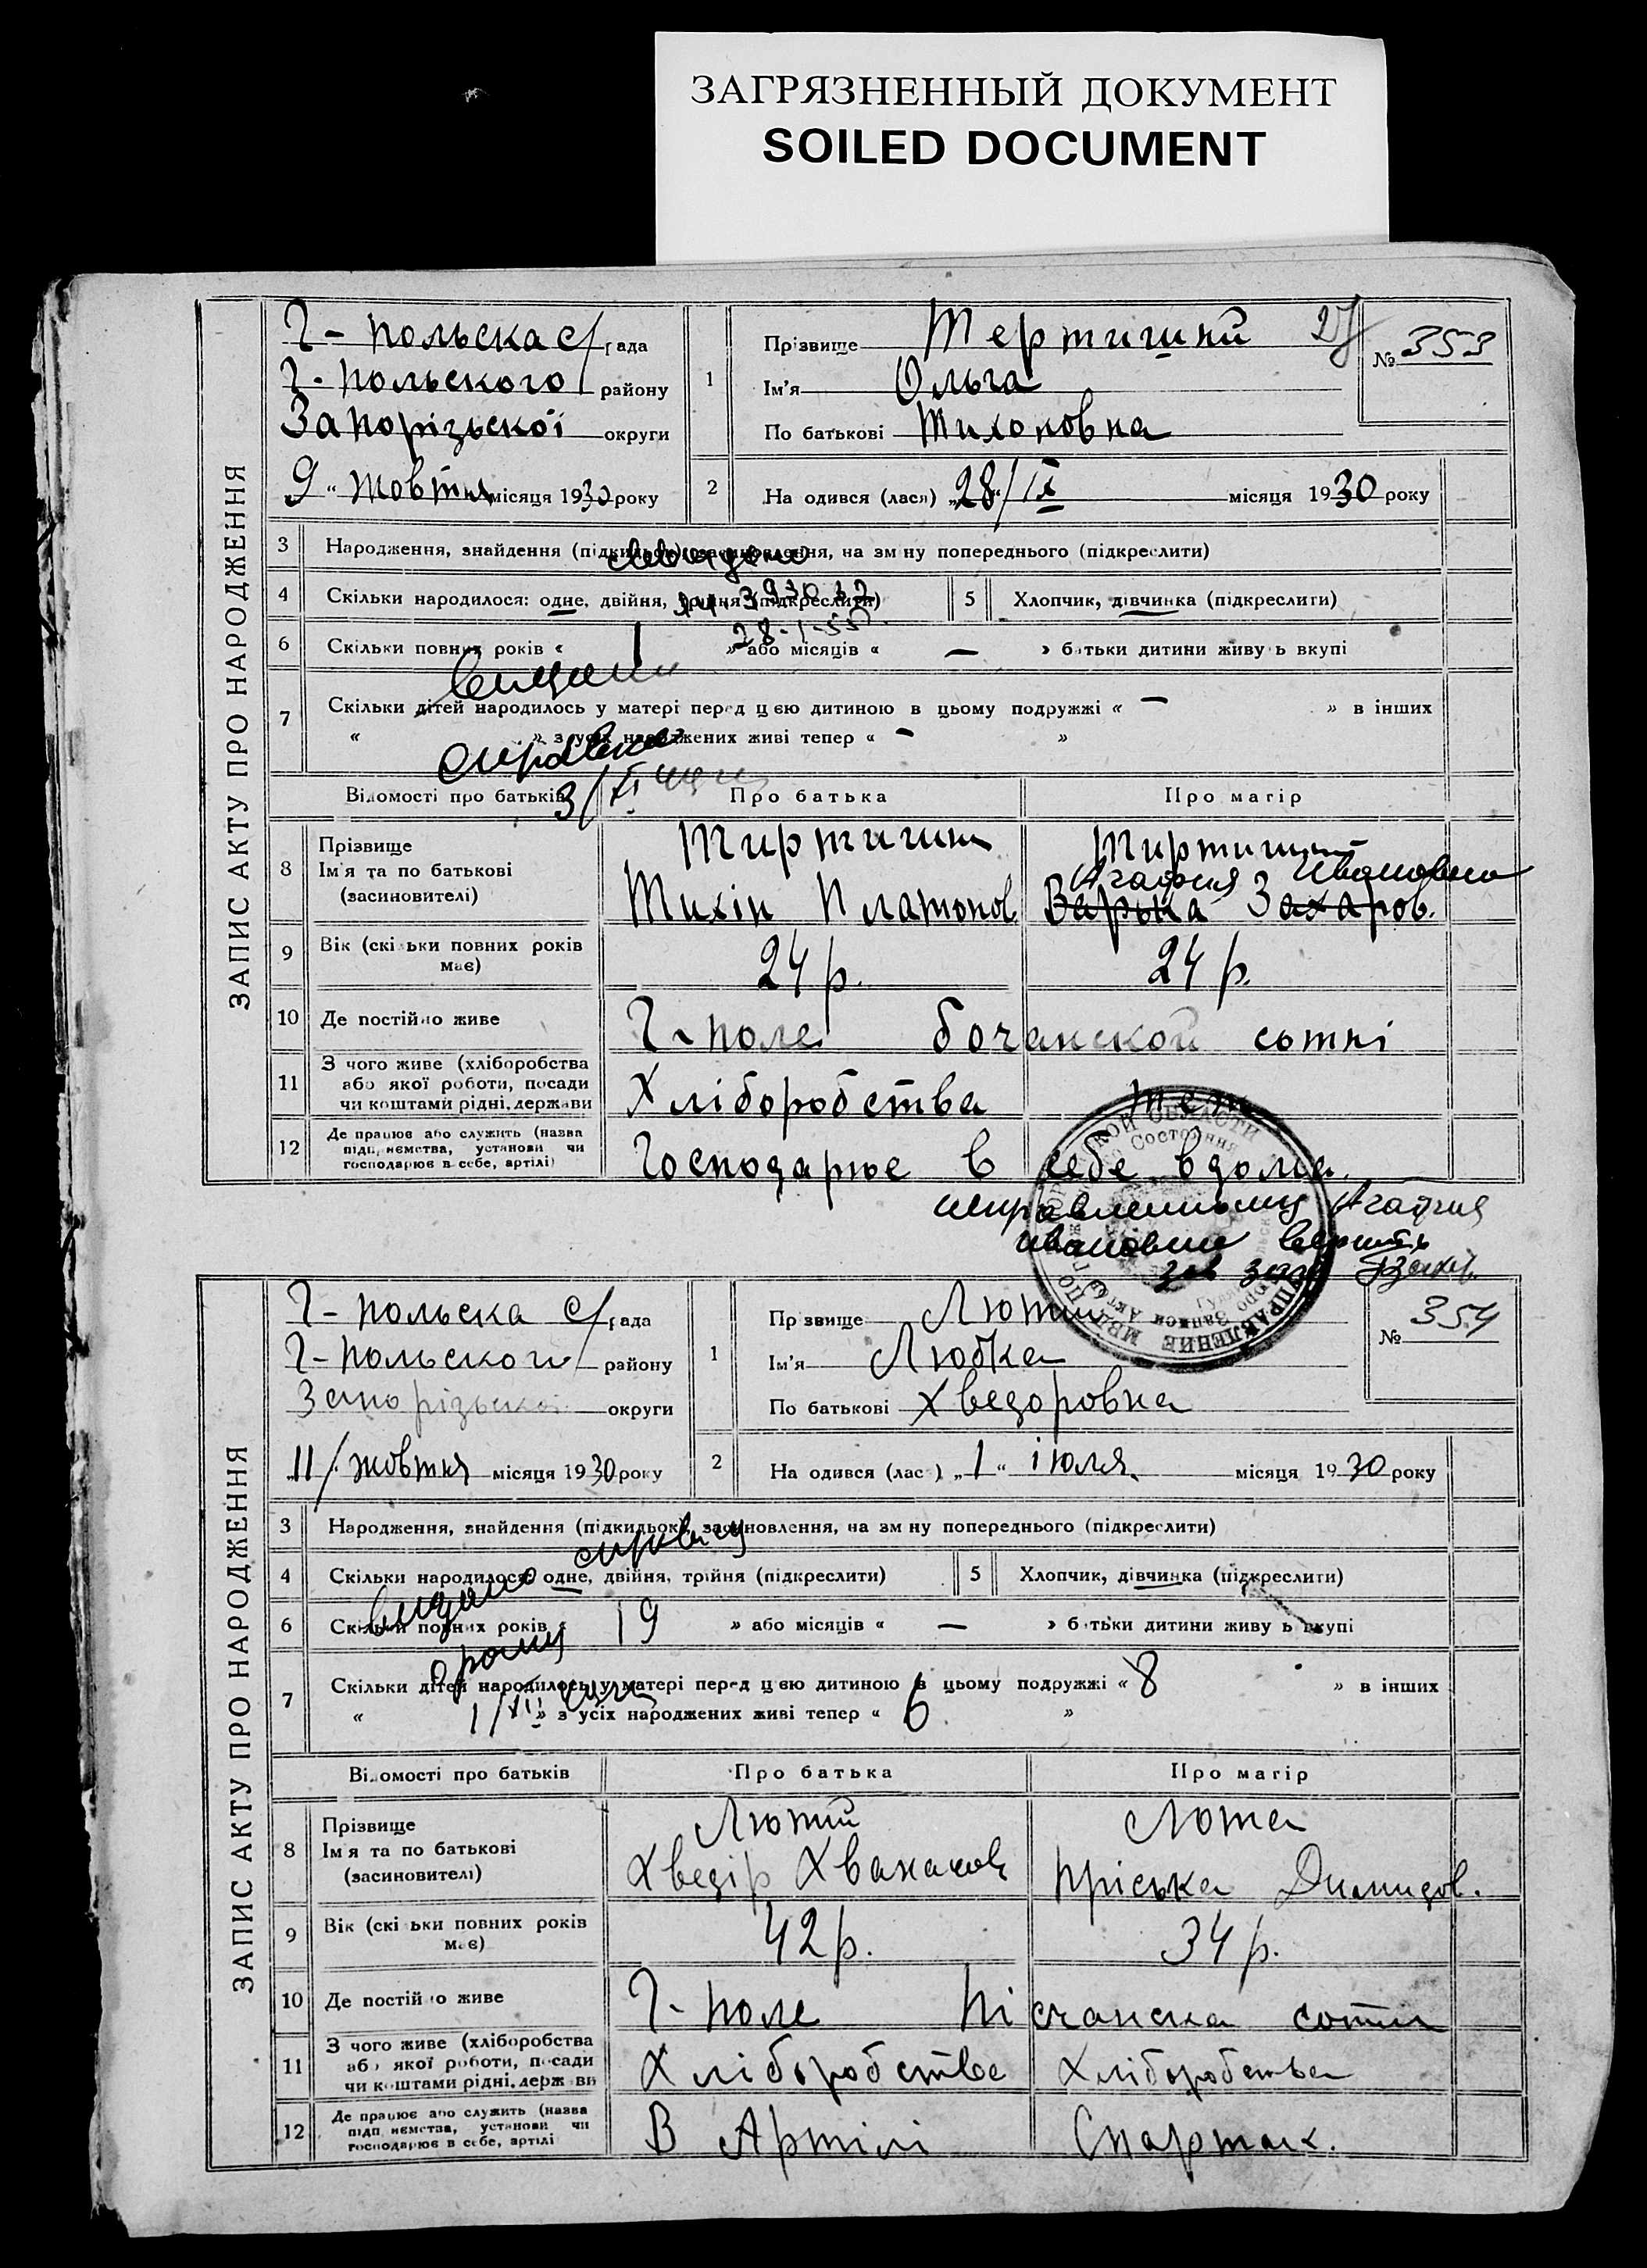 ЗАГРЯЗНЕННЫЙ ДОКУМЕНТ
SOILED DOCUMENT
ЗАПИС АКТУ ПРО НАРОДЖЕННЯ
Г-польска с/рада
Г-польского району
Запорізьскої округи
9 " жовтня місяця 1930 року
1
Прізвище Тертишний
Ім'я Ольга
По батькові Тихоновна
27
№ 353
2
На одився (лася) „28/ІХ місяця 1930 року
3 Народження, знайдення (підкидьок), засиновлення, на зм ну попереднього (підкреслити)
4 Скільки народилося: одне, двійня, трійня (підкреслити)
5 Хлопчик, дівчинка (підкреслити)
28-1-55
6 Скільки повних років « 1 » або місяців « — » батьки дитини живу ь вкупі
7 Скільки дітей народилось у матері перед ц єю дитиною в цьому подружжі « — » в інших
« » з усіх народжених живі тепер « - »
справка
3/XI
Відомості про батьків
Про батька
Про матір
8 Прізвище
Ім'я та по батькові
(засиновителі)
Тиртишн
Тихін Платонов.
Тиртишн
Агафия Ивановна
Варька Захаров.
9 Вік (скі ьки повних років має)
24 р.
24 р.
10 Де постійно живе
Г-поле бочанской сотні
11 З чого живе (хліборобства
або якої роботи, посади
чи коштами рідні, держави
Хліборобства
теж
12 Де працює або служить (назва
підп иємства, установи чи
господарює в себе, артілі)
Господарює в себе вдома.
исправленному Агафия
Ивановна верить
зав загс
ЗАПИС АКТУ ПРО НАРОДЖЕННЯ
Г-польска с/рада
Г-польского району
Запорізьскої округи
11/ жовтня місяця 1930 року
1
Пр звище Лютий
Ім'я Любка
По батькові Хведоровна
№ 354
2
На одився (лас ) „1" іюля місяця 1930 року
3 Народження, знайдення (підкидьок), засиновлення, на зм ну попереднього (підкреслити)
4 Скільки народилося: одне, двійня, трійня (підкреслити)
5 Хлопчик, дівчинка (підкреслити)
видано справку
6 Скільки повних років « 19 » або місяців « — » б тьки дитини живу ь вкупі
7 Скільки дітей народилось у матері перед ц єю дитиною в цьому подружжі « 8 » в інших
« » з усіх народжених живі тепер « 6 »
1/XII
Ві омості про батьків
Про батька
Про матір
8 Прізвище
Ім я та по батькові
(засиновителі)
Лютий
Хведір Хванасов
Люта
Пріська Димидов.
9 Вік (скі ьки повних років м є)
42 р.
34 р.
10 Де постій о живе
Г-поле Пісчанска сотня
11 З чого живе (хліборобства
аб якої роботи, посади
чи коштами рідні, держ ви
Хліборобства
Хліборобства
12 Де працює або служить (назва
підп иємства, установи чи
господарює в себе, артілі
В Артілі Спартак.